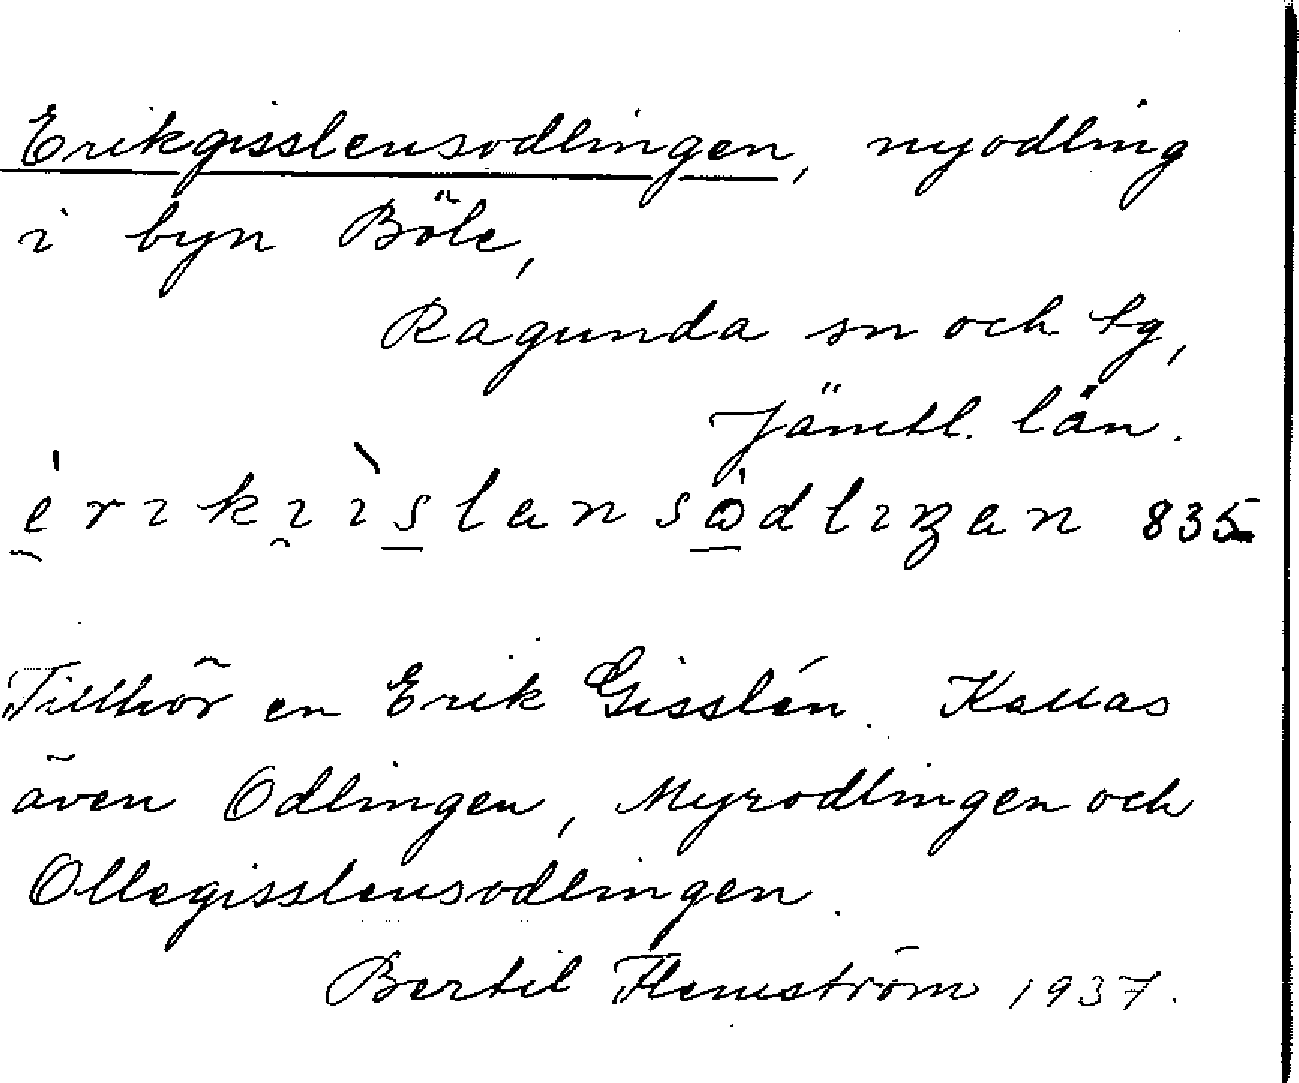 Erikgisslensodlingen, nyodling
i byn Böle,
Ragunda sn och tg,
Jämtl. län.
835
Tillhör en Erik Gisslén. Kallas
även Odlingen, Myrodlingen och
Ollegisslensodlingen.
Bertil Flemström 1937.